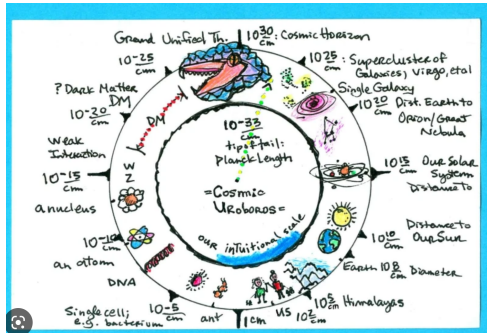 Ground Unified Th.
10^30 cm : Cosmic Horizon
10^25 cm : Supercluster of
Galaxies; Virgo, et al
Single Galaxy
10^20 cm Dist. Earth to
Orion/Great
Nebula
10^15 cm Our Solar
System
Distance to
Distance to
Our Sun
10^10 cm
Earth 10^8 cm Diameter
10^5 cm Himalayas
10^2 cm
US
1cm
ant
10^-5 cm
Single cell;
e.g. bacterium
DNA
an atom
10^-10 cm
a nucleus
10^-15 cm
W
Z
Weak
Interaction
10^-20 cm
? Dark Matter
DM
DM
10^-25 cm
10^-33 cm
tip of tail:
Planck Length
=Cosmic
Uroboros=
our intuitional scale